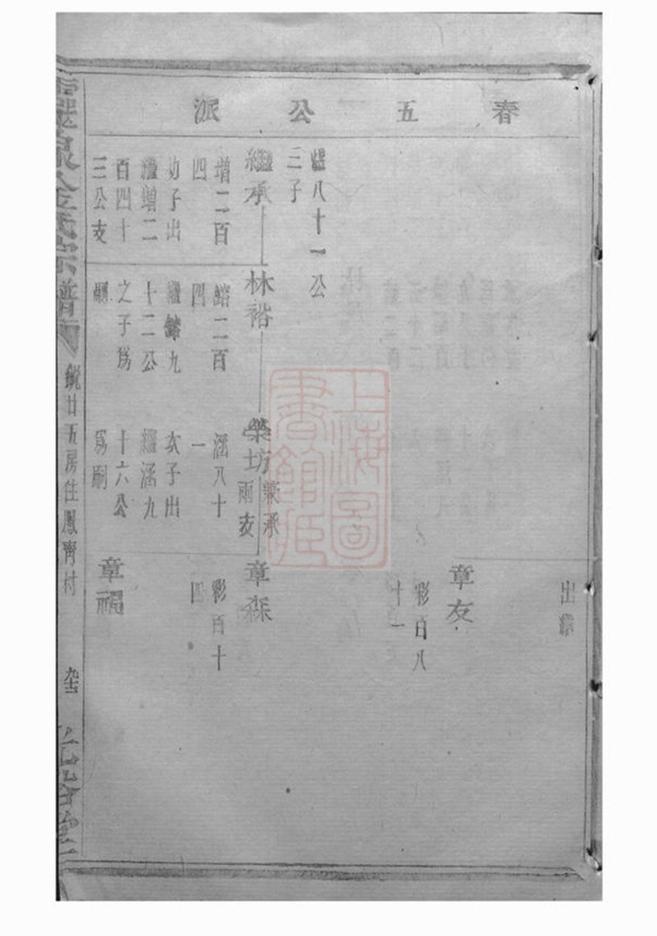 春五公派
出繼
章友
彩百八
十一
爐八十一公
三子
繼承
增二百
四
幼子出
繼增二
百四十
三公支
林裕
錧二百
四
繼錧九
十二公
之子為
嗣
榮坊
兼承
兩支
涵八十
一
次子出
繼涵九
十六公
為嗣
章森
彩百十
四
章禑
金氏宗譜
銳廿五房住鳳南村
上海圖書館藏